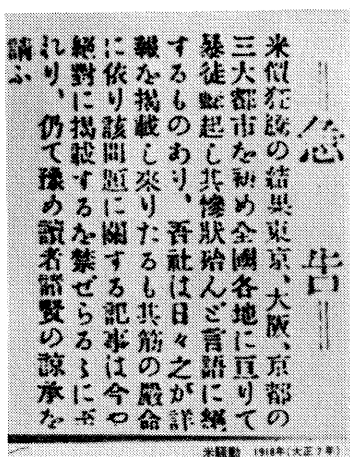 急告
米價狂騰の結果東京、大阪、京都の
三大都市を初め全國各地に亘りて
暴徒蜂起し其慘狀殆んど言語に絕
するものあり、吾社は日々之が詳
報を揭載し來りたるも其筋の嚴命
に依り該問題に關する記事は今や
絕對に揭載するを禁ぜらるゝに至
れり、仍て豫め讀者諸賢の諒承を
請ふ
米騒動 1918年(大正7年)